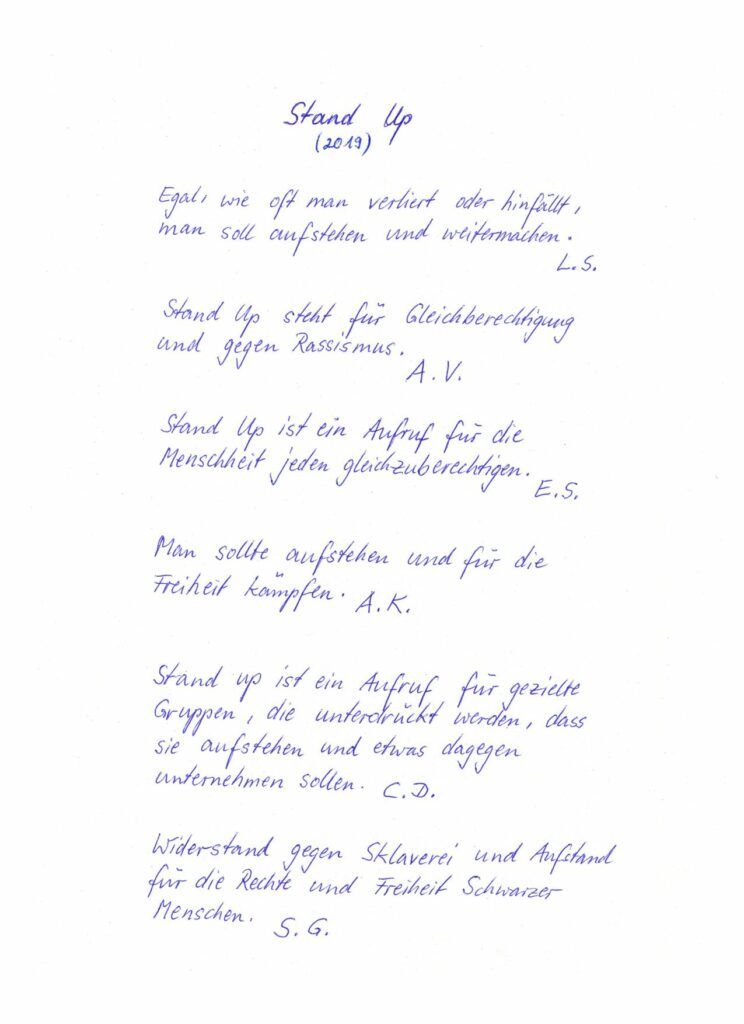 Stand Up
(2019)
Egal, wie oft man verliert oder hinfällt,
man soll aufstehen und weitermachen.
L.S.
Stand Up steht für Gleichberechtigung
und gegen Rassismus.
A.V.
Stand Up ist ein Aufruf für die
Menschheit jeden gleichzuberechtigen.
E.S.
Man sollte aufstehen und für die
Freiheit kämpfen. A.K.
Stand up ist ein Aufruf für gezielte
Gruppen, die unterdrückt werden, dass
sie aufstehen und etwas dagegen
unternehmen sollen. C.D.
Widerstand gegen Sklaverei und Aufstand
für die Rechte und Freiheit Schwarzer
Menschen. S.G.